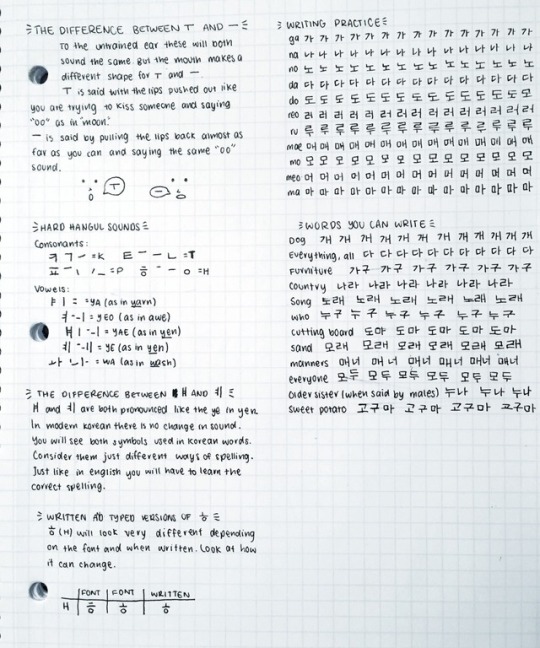 THE DIFFERENCE BETWEEN ㅜ AND ㅡ
To the untrained ear these will both
sound the same. But the mouth makes a
different shape for ㅜ and ㅡ.
ㅜ is said with the lips pushed out like
you are trying to kiss someone and saying
"oo" as in "moon."
ㅡ is said by pulling the lips back almost as
far as you can and saying the same "oo"
sound.
ㅜ
ㅡ
HARD HANGUL SOUNDS
Consonants:
ㅋ ㄱ ㅡ =K ㅌ ㅡ ㅡ ㄴ =T
=P ㅎ =H
Vowels:
ㅑ ㅣ = =YA (as in yarn)
ㅕ =YEO (as in awe)
ㅒ =YAE (as in yen)
ㅖ =YE (as in yen)
ㅘ =WA (as in wash)
THE DIFFERENCE BETWEEN ㅒ AND ㅖ
ㅒ and ㅖ are both pronounced like the ye in yen.
In modern korean there is no change in sound.
You will see both symbols used in korean words.
Consider them just different ways of spelling.
Just like in english you will have to learn the
correct spelling.
WRITTEN AD TYPED VERSIONS OF ㅎ
ㅎ (H) will look very different depending
on the font and when written. Look at how
it can change.
FONT FONT WRITTEN
H ㅎ ㅎ ㅎ
WRITING PRACTICE
ga 가 가 가 가 가 가 가 가 가 가 가
na 나 나 나 나 나 나 나 나 나 나 나
no 노 노 노 노 노 노 노 노 노 노 노
da 다 다 다 다 다 다 다 다 다 다 다
do 도 도 도 도 도 도 도 도 도 도 도
reo 러 러 러 러 러 러 러 러 러 러 러
ru 루 루 루 루 루 루 루 루 루 루 루
mae 매 매 매 매 매 매 매 매 매 매 매
mo 모 모 모 모 모 모 모 모 모 모 모
meo 머 머 머 머 머 머 머 머 머 머 머
ma 마 마 마 마 마 마 마 마 마 마 마
WORDS YOU CAN WRITE
Dog 개 개 개 개 개 개 개 개 개 개
Everything, all 다 다 다 다 다 다 다 다
Furniture 가구 가구 가구 가구 가구
Country 나라 나라 나라 나라 나라
Song 노래 노래 노래 노래 노래 노래
who 누구 누구 누구 누구 누구
Cutting board 도마 도마 도마 도마
sand 모래 모래 모래 모래 모래 모래
manners 매너 매너 매너 매너 매너
everyone 모두 모두 모두 모두 모두
Older sister (when said by males) 누나 누나 누나
Sweet potato 고구마 고구마 고구마 고구마